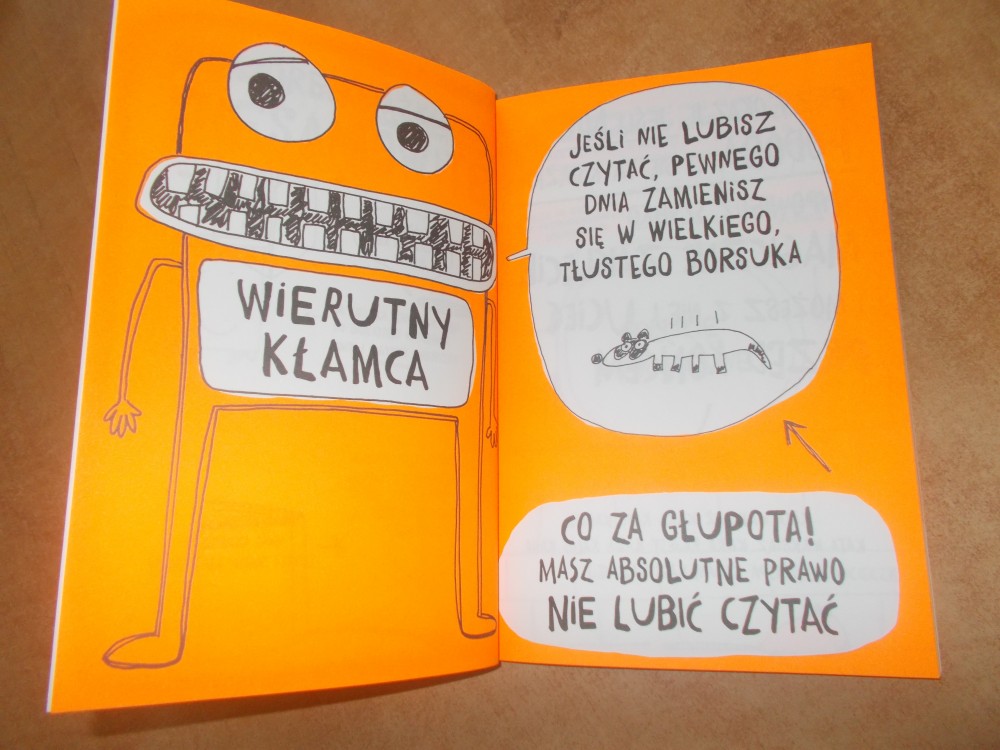 WIERUTNY
KŁAMCA
JEŚLI NIE LUBISZ
CZYTAĆ, PEWNEGO
DNIA ZAMIENISZ
SIĘ W WIELKIEGO,
TŁUSTEGO BORSUKA
CO ZA GŁUPOTA!
MASZ ABSOLUTNE PRAWO
NIE LUBIĆ CZYTAĆ